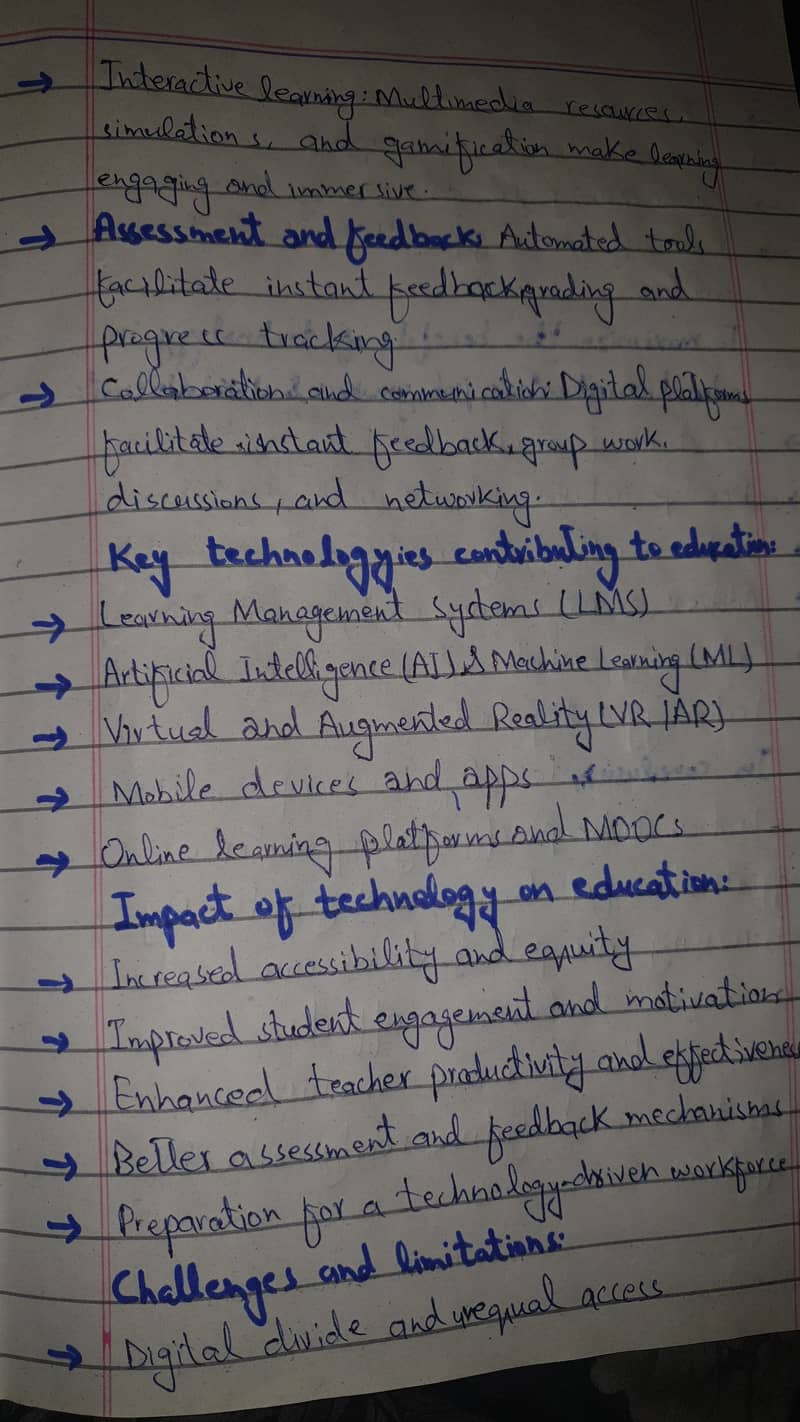 → Interactive learning: Multimedia resources,
simulations, and gamification make learning
engaging and immersive.
→ Assessment and feedback: Automated tools
facilitate instant feedback, grading and
progress tracking.
→ Collaboration and communication: Digital platforms
facilitate instant feedback, group work,
discussions, and networking.
Key technologyies contributing to education:
→ Learning Management Systems (LMS)
→ Artificial Intelligence (AI) & Machine Learning (ML)
→ Virtual and Augmented Reality (VR/AR)
→ Mobile devices and apps
→ Online learning platforms and MOOCs
Impact of technology on education:
→ Increased accessibility and equity
→ Improved student engagement and motivation
→ Enhanced teacher productivity and effectivenes
→ Better assessment and feedback mechanisms
→ Preparation for a technology-driven workforce
Challenges and limitations:
→ Digital divide and unequal access